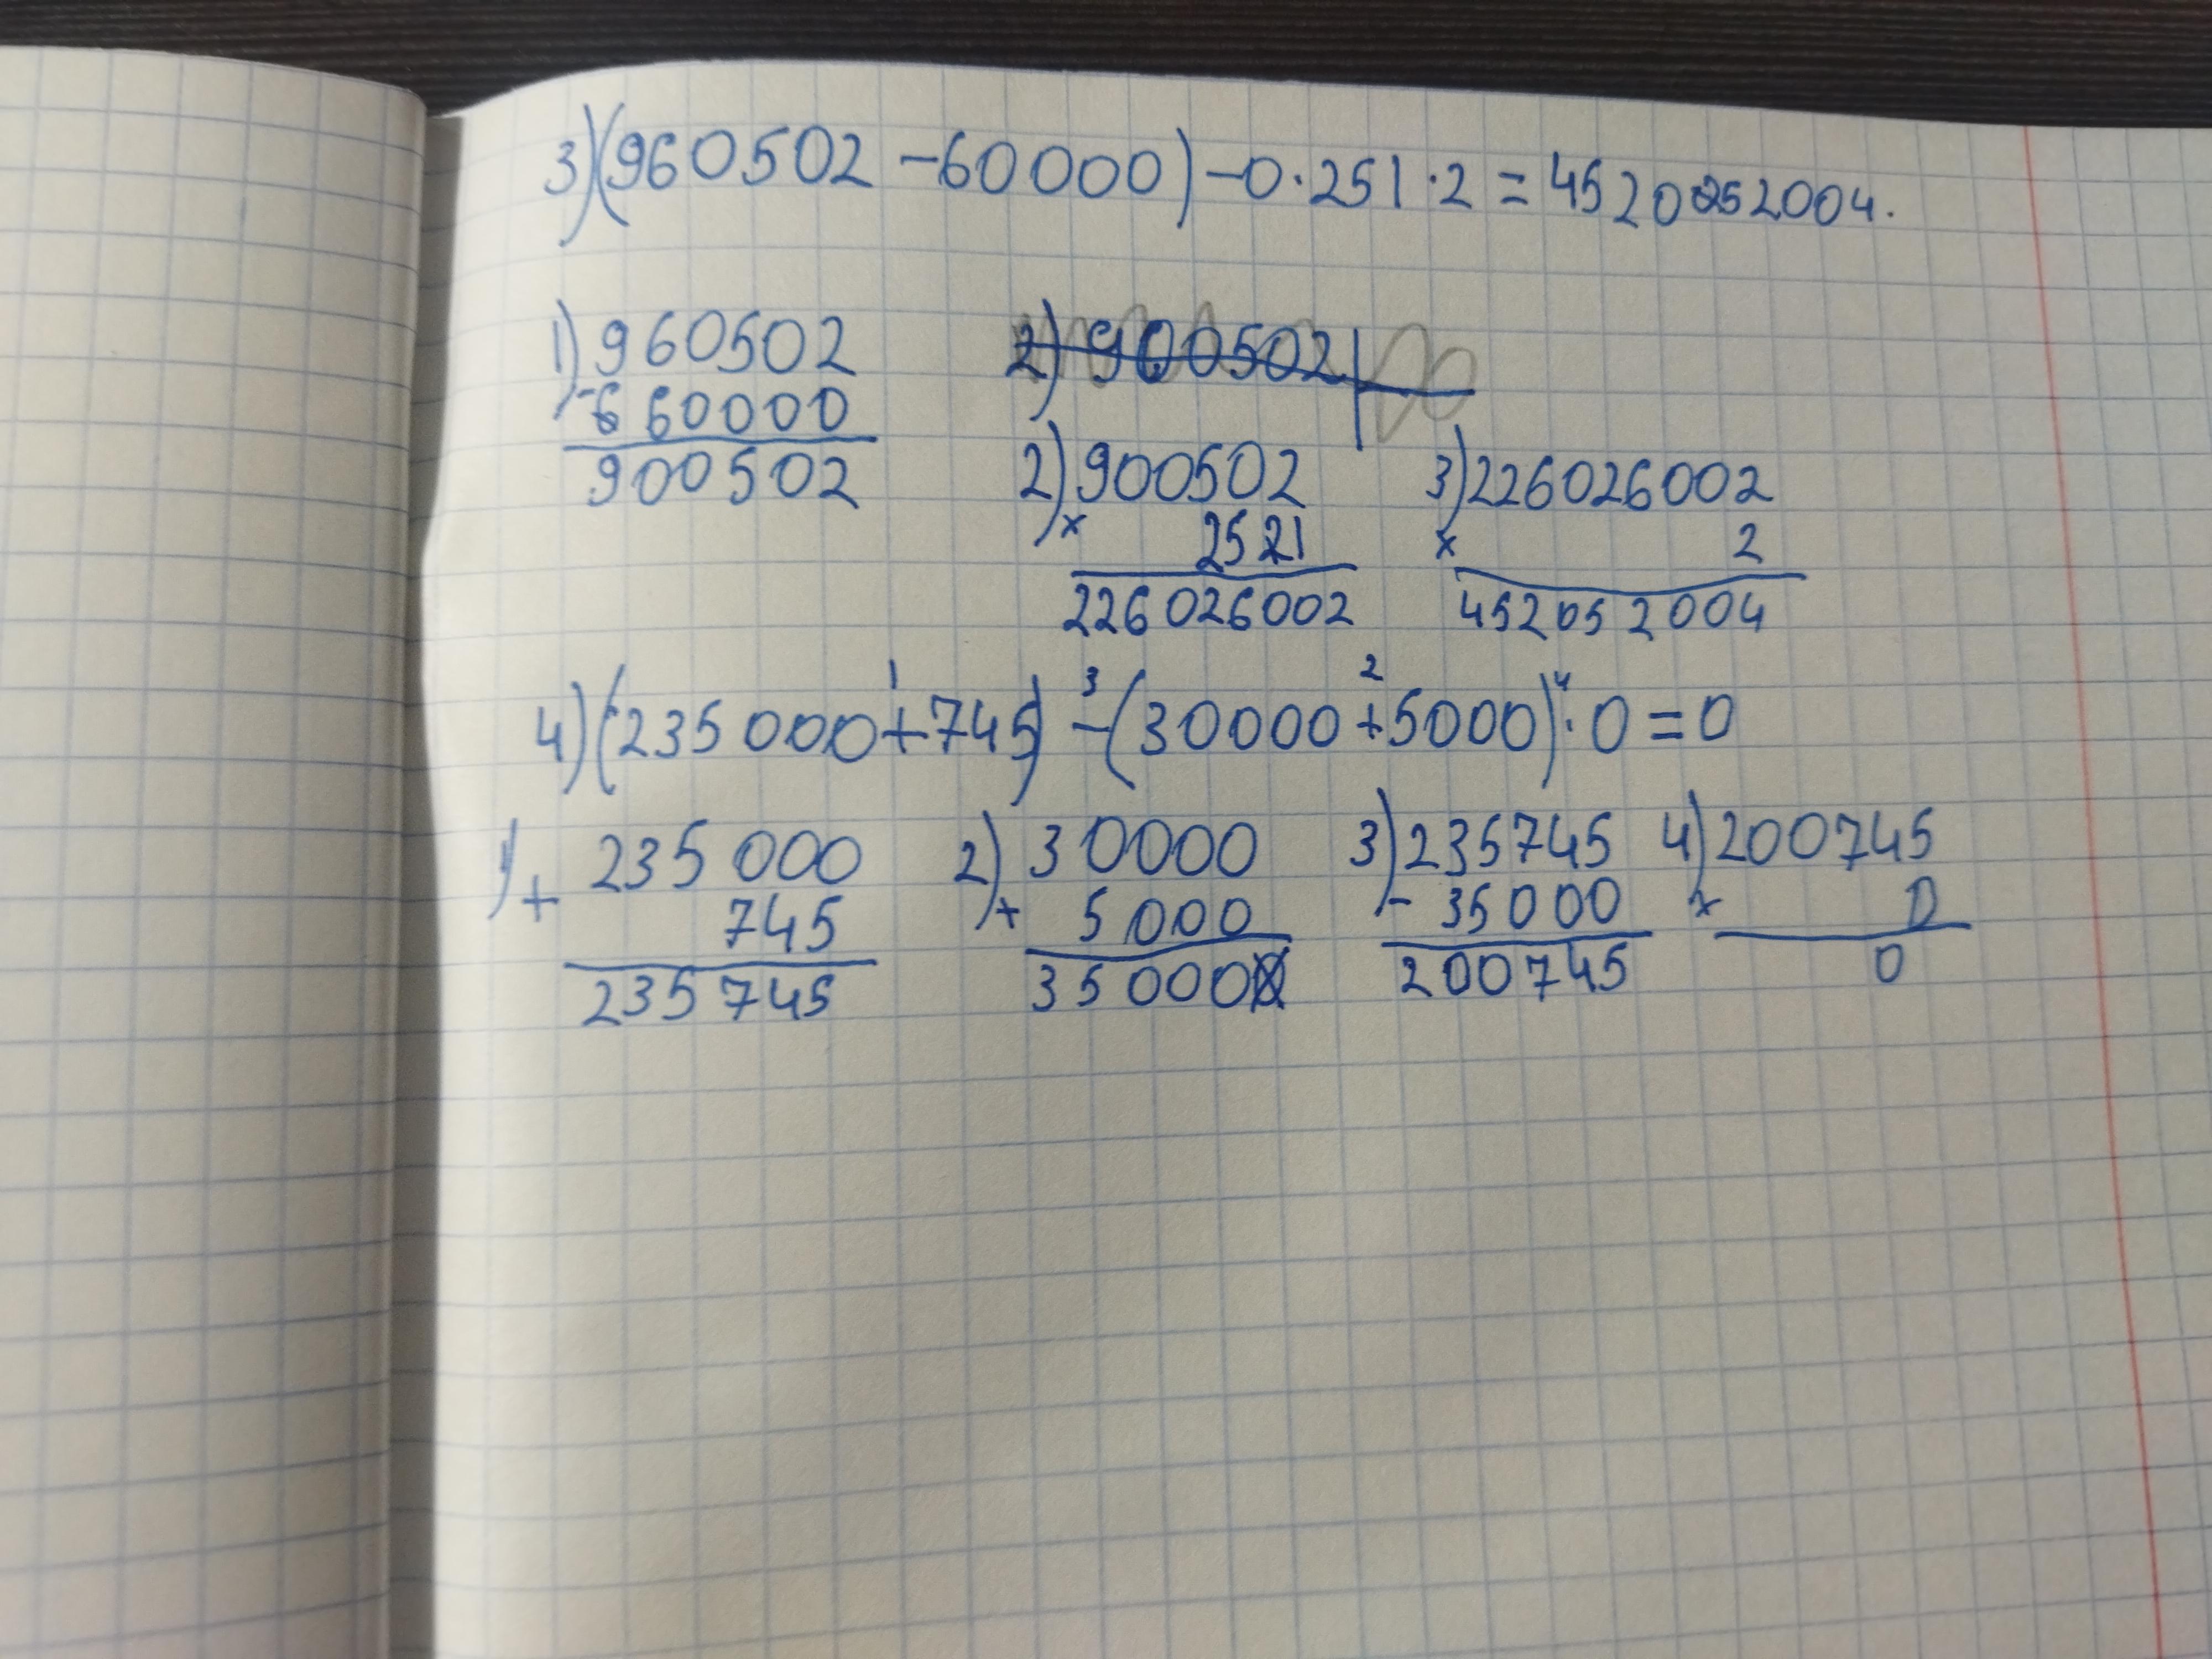 3) (960502 - 60000) - 0 · 251 · 2 = 4520252004.
1) 960502
- 60000
900502
2) 900502
2) 900502
× 251
226026002
3) 226026002
× 2
452052004
1 3 2 4
4) (235000 + 745) - (30000 + 5000) · 0 = 0
1) 235000
+ 745
235745
2) 30000
+ 5000
35000
3) 235745
- 35000
200745
4) 200745
× 0
0